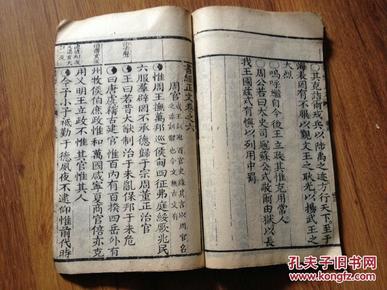 其克詰爾戎兵以陟禹之迹方行天下至于
海表罔有不服以覲文王之耿光以揚武王之
大烈
嗚呼繼自今後王立政其惟克用常人
周公若曰太史司寇蘇公式敬爾由獄以長
我王國茲式有慎以列用中罰
書經正文卷之六
周官
惟周王撫萬邦巡侯甸四征弗庭綏厥兆民
六服羣辟罔不承德歸于宗周董正治官
王曰若昔大猷制治于未亂保邦于未危
曰唐虞稽古建官惟百內有百揆四岳外有
州牧侯伯庶政惟和萬國咸寧夏商官倍亦克
用乂明王立政不惟其官惟其人
今予小子祗勤于德夙夜不逮仰惟前代時
孔夫子旧书网